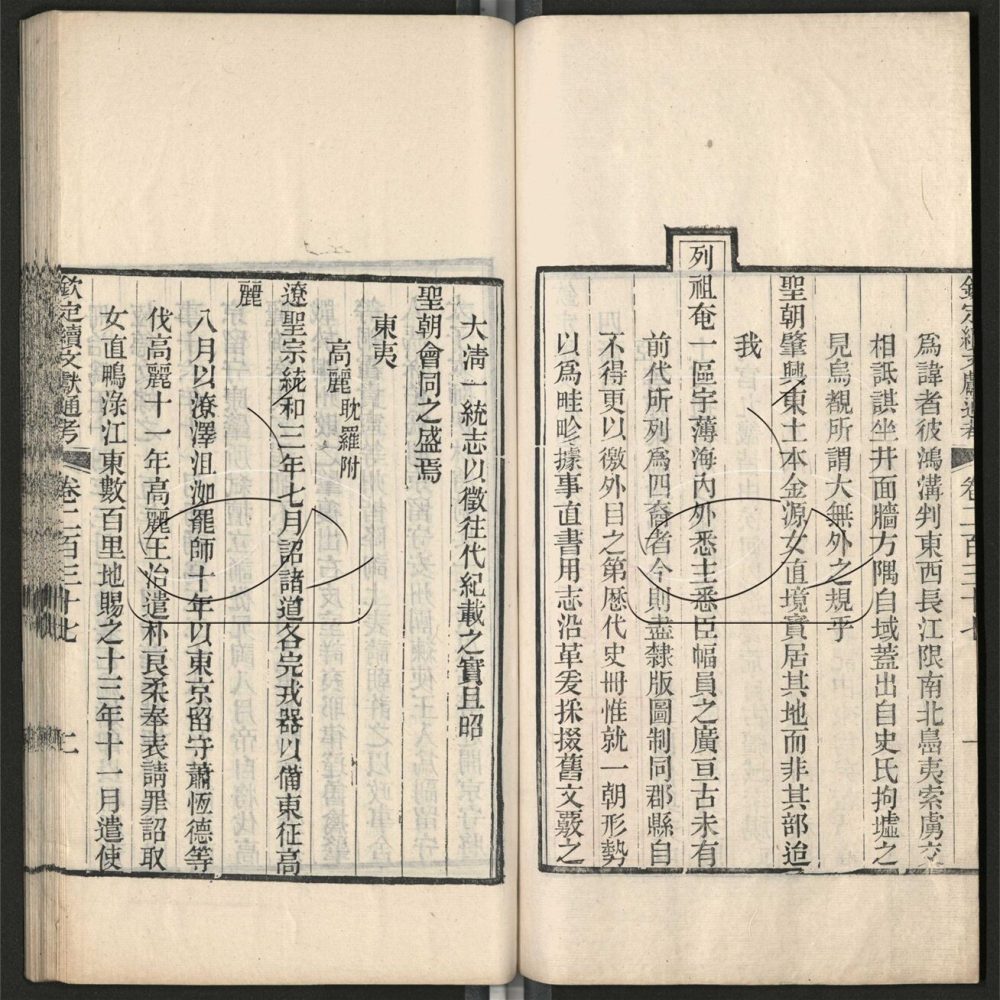 欽定續文獻通考 卷二百三十七 一
爲諱者彼鴻溝判東西長江限南北島夷索虜交
相詆諆坐井面牆方隅自域蓋出自史氏拘墟之
見烏覩所謂大無外之規乎
聖朝肇興東土本金源女直境實居其地而非其部迨
我
列祖奄一區宇薄海內外悉主悉臣幅員之廣亘古未有
前代所列爲四裔者今則盡隸版圖制同郡縣自
不得更以徼外目之第歷代史冊惟就一朝形勢
以爲畦畛據事直書用志沿革爰採掇舊文覈之
大淸一統志以徵往代紀載之實且昭
聖朝會同之盛焉
東夷
高麗 耽羅附
遼聖宗統和三年七月詔諸道各完戎器以備東征高
麗
八月以潦澤沮洳罷師十年以東京留守蕭恆德等
伐高麗十一年高麗王治遣朴良柔奉表請罪詔取
女直鴨淥江東數百里地賜之十三年十一月遣使
欽定續文獻通考 卷二百三十七 二